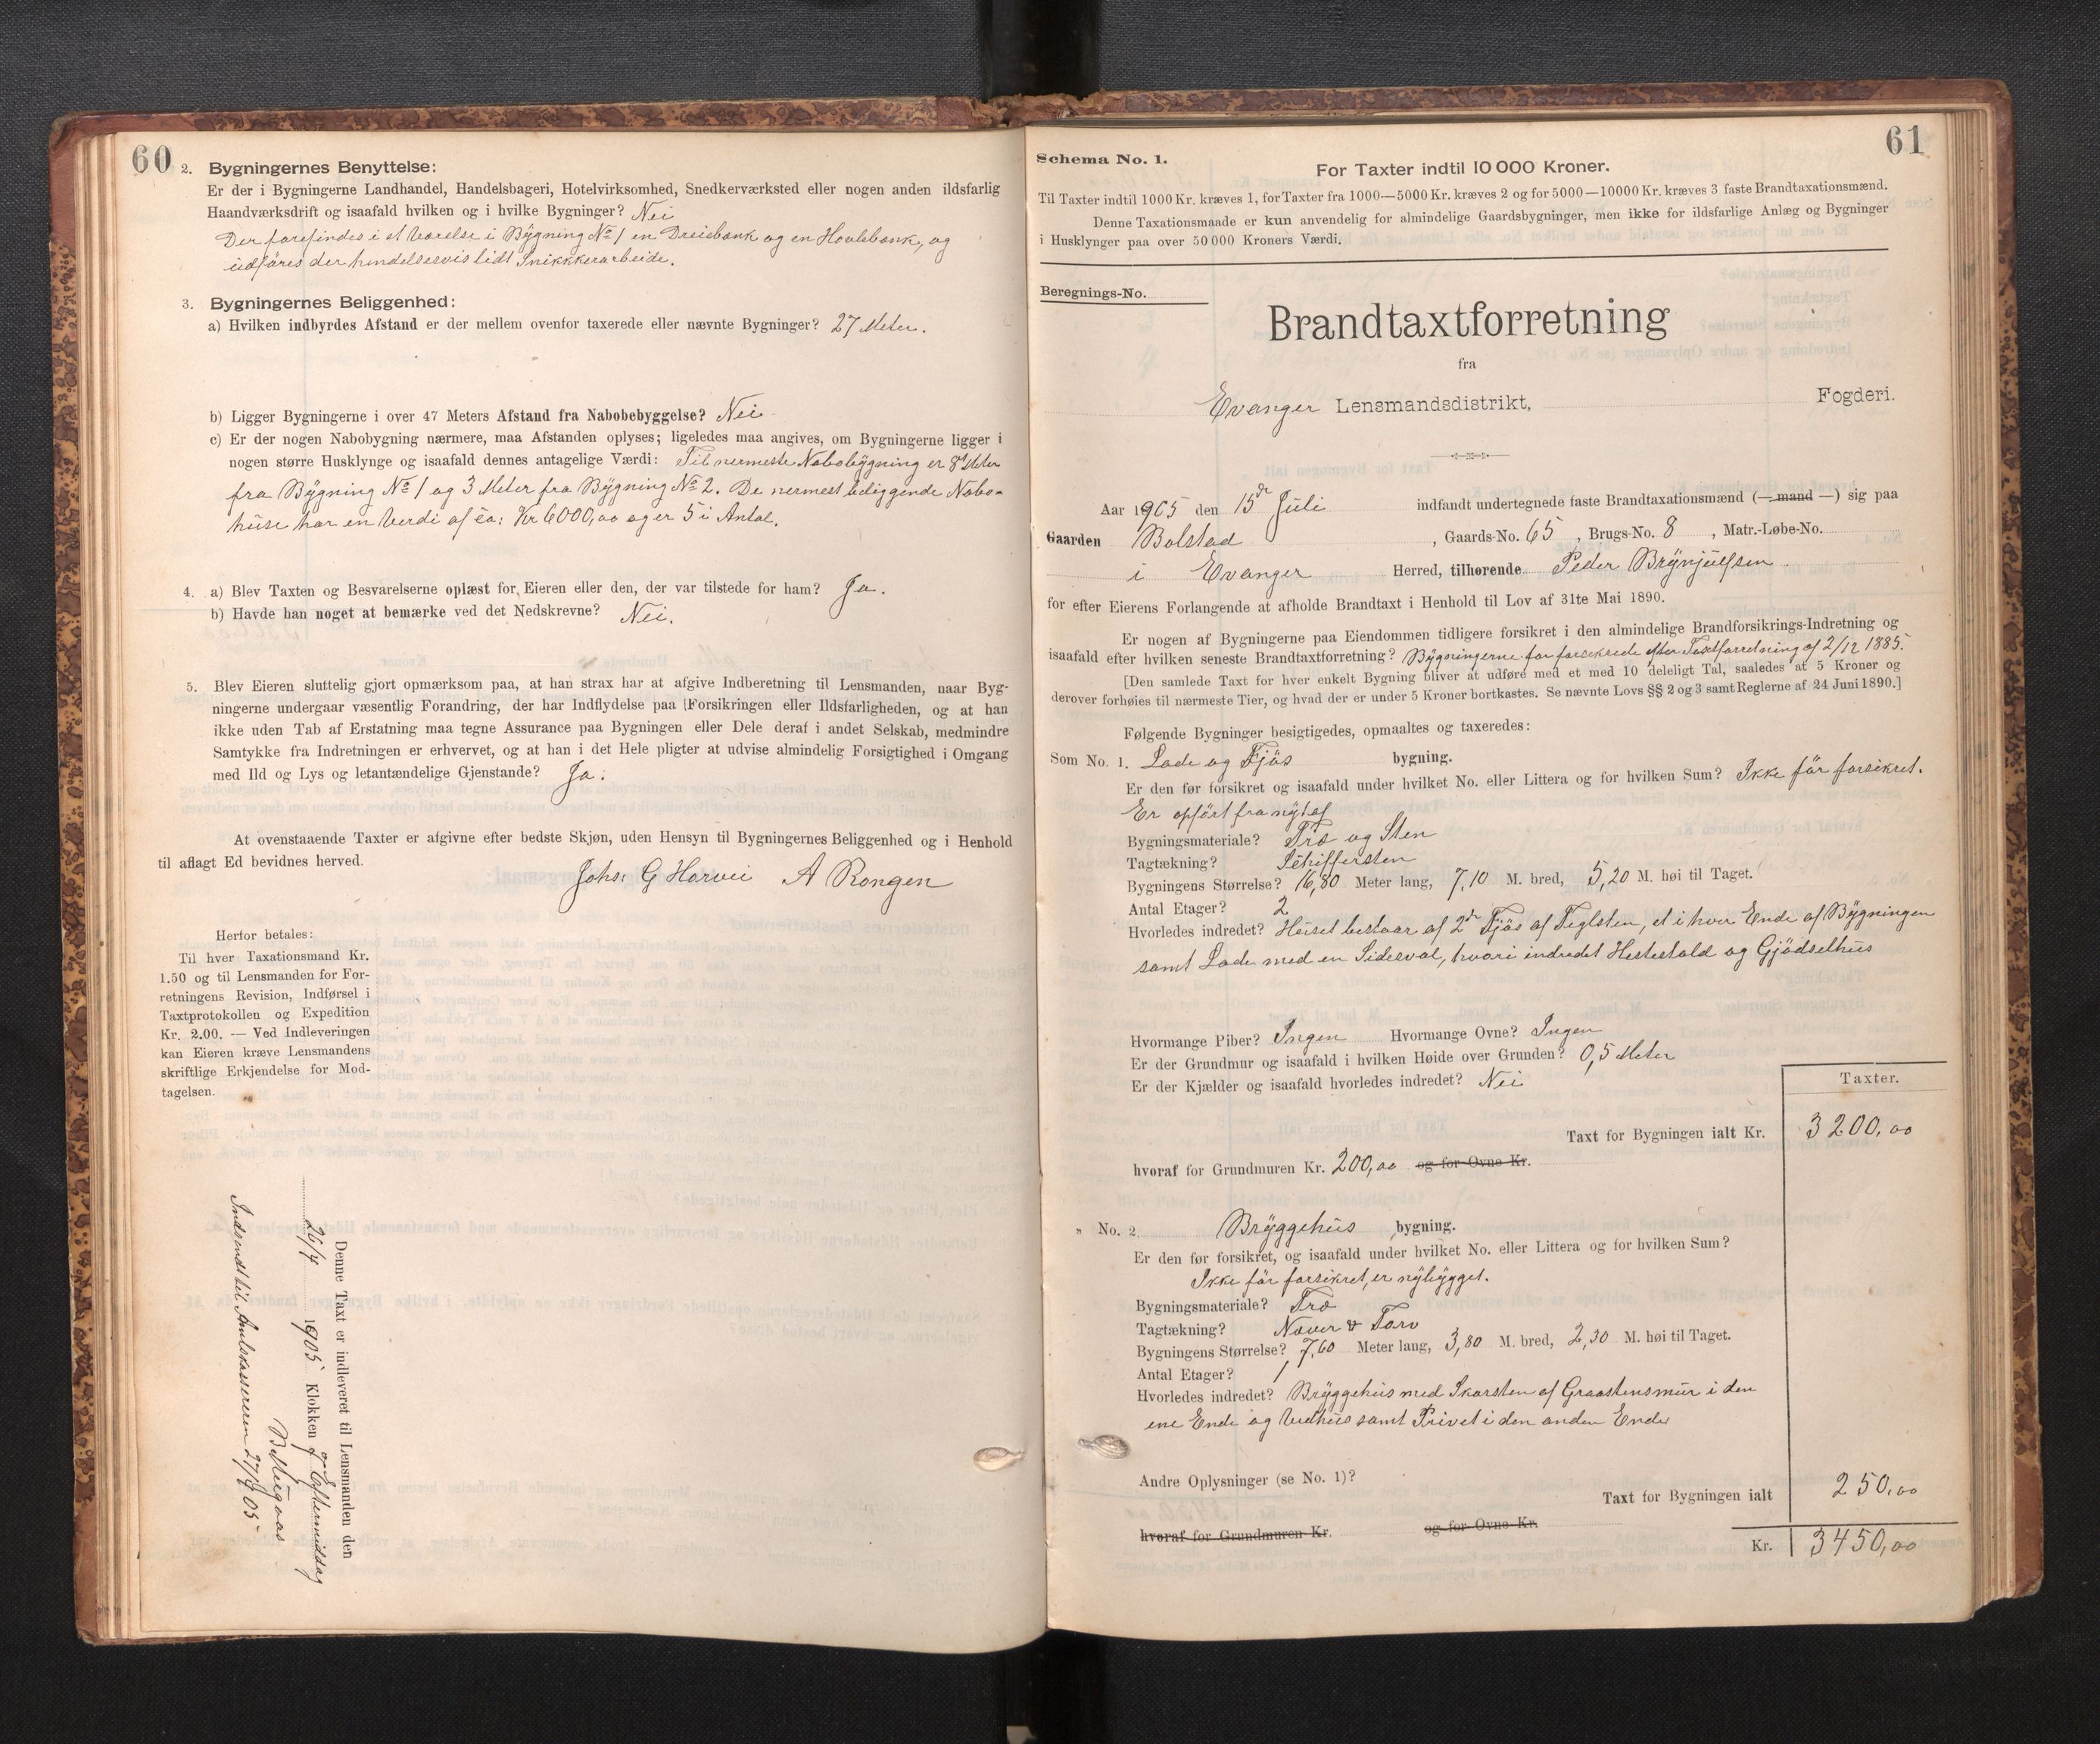 60
2. Bygningernes Benyttelse:
Er der i Bygningerne Landhandel, Handelsbageri, Hotelvirksomhed, Snedkerværksted eller nogen anden ildsfarlig
Haandværksdrift og isaafald hvilken og i hvilke Bygninger? Nei
Der forefindes i et Værelse i Bygning No 1 en Dreiebænk og en Høvlebænk, og
udføres der hendelsesvis lidt Snikkkerarbeide.
3. Bygningernes Beliggenhed:
a) Hvilken indbyrdes Afstand er der mellem ovenfor taxerede eller nævnte Bygninger? 27 Meter.
b) Ligger Bygningerne i over 47 Meters Afstand fra Nabobebyggelse? Nei
c) Er der nogen Nabobygning nærmere, maa Afstanden oplyses; ligeledes maa angives, om Bygningerne ligger i
nogen større Husklynge og isaafald dennes antagelige Værdi: Til nermeste Nabobygning er 8 Meter
fra Bygning No 1 og 3 Meter fra Bygning No 2. De nermest beliggende Nabo-
huse har en Verdi af ca: Kr 6000,00 og er 5 i Antal.
4. a) Blev Taxten og Besvarelserne oplæst for Eieren eller den, der var tilstede for ham? Ja.
b) Havde han noget at bemærke ved det Nedskrevne? Nei.
5. Blev Eieren sluttelig gjort opmærksom paa, at han strax har at afgive Indberetning til Lensmanden, naar Byg-
ningerne undergaar væsentlig Forandring, der har Indflydelse paa Forsikringen eller Ildsfarligheden, og at han
ikke uden Tab af Erstatning maa tegne Assurance paa Bygningen eller Dele deraf i andet Selskab, medmindre
Samtykke fra Indretningen er erhvervet, og at han i det Hele pligter at udvise almindelig Forsigtighed i Omgang
med Ild og Lys og letantændelige Gjenstande? Ja.
At ovenstaaende Taxter er afgivne efter bedste Skjøn, uden Hensyn til Bygningernes Beliggenhed og i Henhold
til aflagt Ed bevidnes herved.
Johs: G Horvei A Rongen
Herfor betales:
Til hver Taxationsmand Kr.
1.50 og til Lensmanden for For-
retningens Revision, Indførsel i
Taxtprotokollen og Expedition
Kr. 2.00. — Ved Indleveringen
kan Eieren kræve Lensmandens
skriftlige Erkjendelse for Mod-
tagelsen.
Denne Taxt er indleveret til Lensmanden den
26/7 1905 Klokken 9 Eftermiddag
Indsendt til Amtskassereren 27/7 05
61
Schema No. 1.
For Taxter indtil 10 000 Kroner.
Til Taxter indtil 1000 Kr. kræves 1, for Taxter fra 1000—5000 Kr. kræves 2 og for 5000—10000 Kr. kræves 3 faste Brandtaxationsmænd.
Denne Taxationsmaade er kun anvendelig for almindelige Gaardsbygninger, men ikke for ildsfarlige Anlæg og Bygninger
i Husklynger paa over 50 000 Kroners Værdi.
Beregnings-No.
Brandtaxtforretning
fra
Evanger Lensmandsdistrikt, Fogderi.
Aar 1905 den 15de Juli indfandt undertegnede faste Brandtaxationsmænd (— mand —) sig paa
Gaarden Bolstad , Gaards-No. 65 , Brugs-No. 8 , Matr.-Løbe-No.
i Evanger Herred, tilhørende Peder Brynjulfsen
for efter Eierens Forlangende at afholde Brandtaxt i Henhold til Lov af 31te Mai 1890.
Er nogen af Bygningerne paa Eiendommen tidligere forsikret i den almindelige Brandforsikrings-Indretning og
isaafald efter hvilken seneste Brandtaxtforretning? Bygningerne før forsekrede efter Taxtforretning af 2/12 1885.
[Den samlede Taxt for hver enkelt Bygning bliver at udføre med et med 10 deleligt Tal, saaledes at 5 Kroner og
derover forhøies til nærmeste Tier, og hvad der er under 5 Kroner bortkastes. Se nævnte Lovs §§ 2 og 3 samt Reglerne af 24 Juni 1890.]
Følgende Bygninger besigtigedes, opmaaltes og taxeredes:
Som No. 1. Lade og Fjøs bygning.
Er den før forsikret og isaafald under hvilket No. eller Littera og for hvilken Sum? Ikke før forsikret.
Er opført fra nyt af
Bygningsmateriale? Træ og Sten
Tagtækning? Schiffersten
Bygningens Størrelse? 16,80 Meter lang, 7,10 M. bred, 5,20 M. høi til Taget.
Antal Etager? 2
Hvorledes indredet? Huset bestaar af 2de Fjøs af Teglsten, et i hver Ende af Bygningen
samt Lade med en Sidesval, hvori indredet Hestestald og Gjødselhus
Hvormange Piber? Ingen Hvormange Ovne? Ingen
Er der Grundmur og isaafald i hvilken Høide over Grunden? 0,5 Meter
Er der Kjælder og isaafald hvorledes indredet? Nei
Taxter.
Taxt for Bygningen ialt Kr. 3200,00
hvoraf for Grundmuren Kr. 200,00 og for Ovne Kr.
" No. 2 Bryggehus bygning.
Er den før forsikret, og isaafald under hvilket No. eller Littera og for hvilken Sum?
Ikke før forsikret, er nybygget.
Bygningsmateriale? Træ
Tagtækning? Næver & Torv
Bygningens Størrelse? 7,60 Meter lang, 3,80 M. bred, 2,30 M. høi til Taget.
Antal Etager? 1
Hvorledes indredet? Bryggehus med Skorsten af Graastensmur i den
ene Ende og Vedhus samt Privet i den anden Ende
Andre Oplysninger (se No. 1)?
Taxt for Bygningen ialt 250,00
hvoraf for Grundmuren Kr. og for Ovne Kr.
Kr. 3450,00